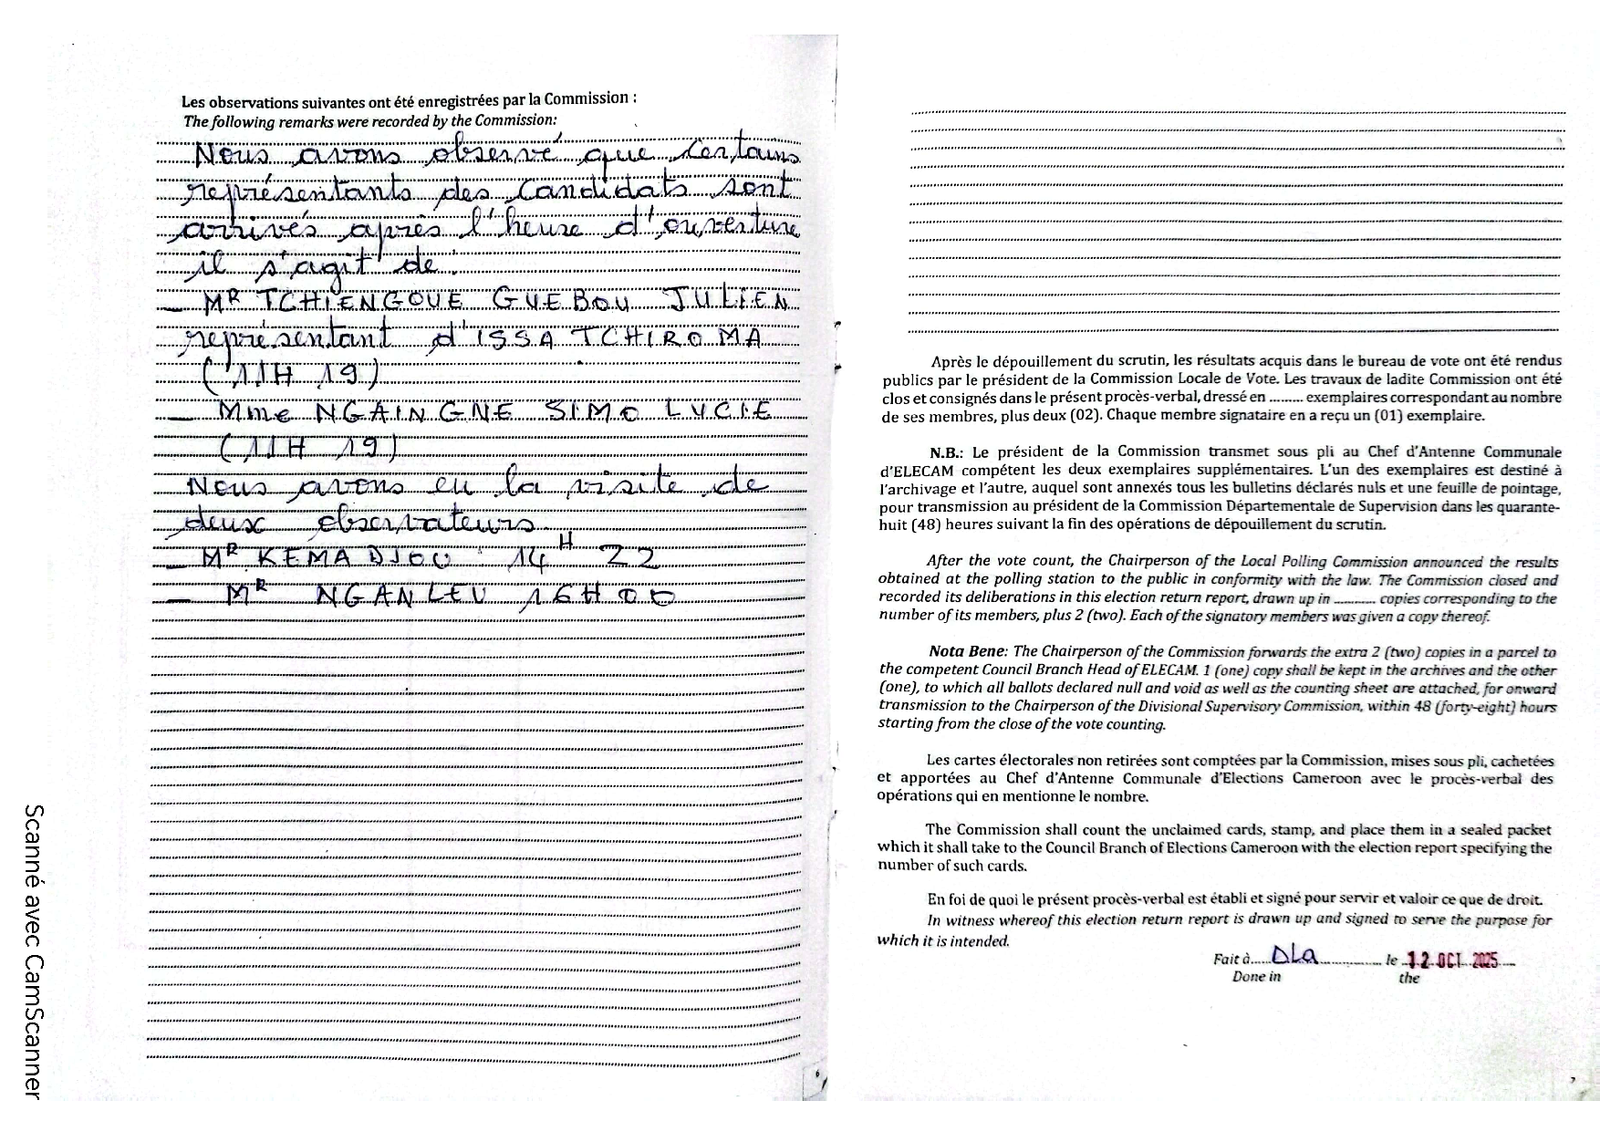 Les observations suivantes ont été enregistrées par la Commission :
The following remarks were recorded by the Commission:
Nous avons observé que certains
représentants des candidats sont
arrivés après l'heure d'ouverture
il s'agit de :
– MR TCHIENGOUE GUEBOU JULIEN
représentant d'ISSA TCHIROMA
(11H 19)
– Mme NGAINGNE SIMO LUCIE
(11H 19)
Nous avons eu la visite de
deux observateurs
– MR KEMADJOU 14H 22
– MR NGANLEU 16H00
6
Après le dépouillement du scrutin, les résultats acquis dans le bureau de vote ont été rendus
publics par le président de la Commission Locale de Vote. Les travaux de ladite Commission ont été
clos et consignés dans le présent procès-verbal, dressé en ......... exemplaires correspondant au nombre
de ses membres, plus deux (02). Chaque membre signataire en a reçu un (01) exemplaire.
N.B.: Le président de la Commission transmet sous pli au Chef d'Antenne Communale
d'ELECAM compétent les deux exemplaires supplémentaires. L'un des exemplaires est destiné à
l'archivage et l'autre, auquel sont annexés tous les bulletins déclarés nuls et une feuille de pointage,
pour transmission au président de la Commission Départementale de Supervision dans les quarante-
huit (48) heures suivant la fin des opérations de dépouillement du scrutin.
After the vote count, the Chairperson of the Local Polling Commission announced the results
obtained at the polling station to the public in conformity with the law. The Commission closed and
recorded its deliberations in this election return report, drawn up in .......... copies corresponding to the
number of its members, plus 2 (two). Each of the signatory members was given a copy thereof.
Nota Bene: The Chairperson of the Commission forwards the extra 2 (two) copies in a parcel to
the competent Council Branch Head of ELECAM. 1 (one) copy shall be kept in the archives and the other
(one), to which all ballots declared null and void as well as the counting sheet are attached, for onward
transmission to the Chairperson of the Divisional Supervisory Commission, within 48 (forty-eight) hours
starting from the close of the vote counting.
Les cartes électorales non retirées sont comptées par la Commission, mises sous pli, cachetées
et apportées au Chef d'Antenne Communale d'Elections Cameroon avec le procès-verbal des
opérations qui en mentionne le nombre.
The Commission shall count the unclaimed cards, stamp, and place them in a sealed packet
which it shall take to the Council Branch of Elections Cameroon with the election report specifying the
number of such cards.
En foi de quoi le présent procès-verbal est établi et signé pour servir et valoir ce que de droit.
In witness whereof this election return report is drawn up and signed to serve the purpose for
which it is intended.
Fait à..... DLa ............... le 12 OCT 2025
Done in the
7
Scanné avec CamScanner